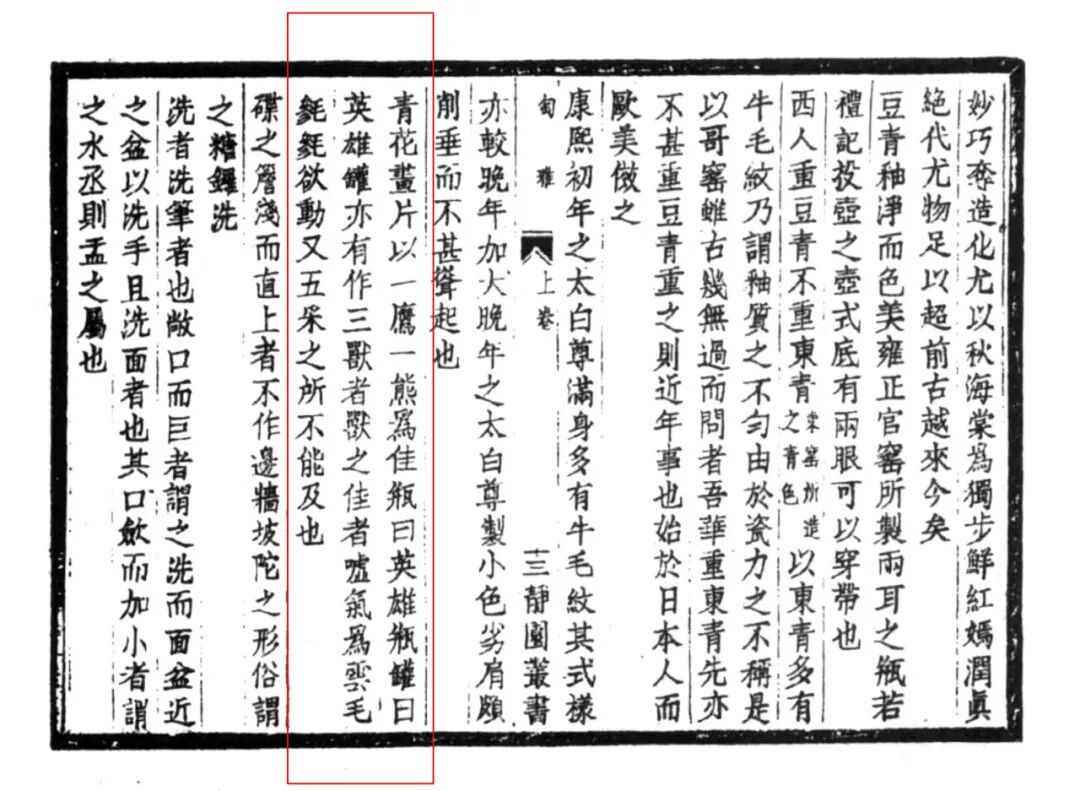 妙巧奪造化尤以秋海棠爲獨步鮮紅嫣潤眞
絕代尤物足以超前古越來今矣
豆青釉淨而色美雍正官窰所製兩耳之瓶若
禮記投壺之壺式底有兩眼可以穿帶也
西人重豆青不重東青柴窰所造之青色以東青多有
牛毛紋乃謂釉質之不勻由於瓷力之不稱是
以哥窰雖古幾無過而問者吾華重東青先亦
不甚重豆青重之則近年事也始於日本人而
歐美倣之
康熙初年之太白尊滿身多有牛毛紋其式樣
匋雅 上卷 十三靜園叢書
亦較晚年加大晚年之太白尊製小色劣肩頗
削垂而不甚聳起也
青花畫片以一鷹一熊爲佳瓶曰英雄瓶罐曰
英雄罐亦有作三獸者獸之佳者噓氣爲雲毛
毿毿欲動又五采之所不能及也
碟之簷淺而直上者不作邊牆坡陀之形俗謂
之糖鑼洗
洗者洗筆者也敞口而巨者謂之洗而面盆近
之盆以洗手且洗面者也其口斂而加小者謂
之水丞則盂之屬也